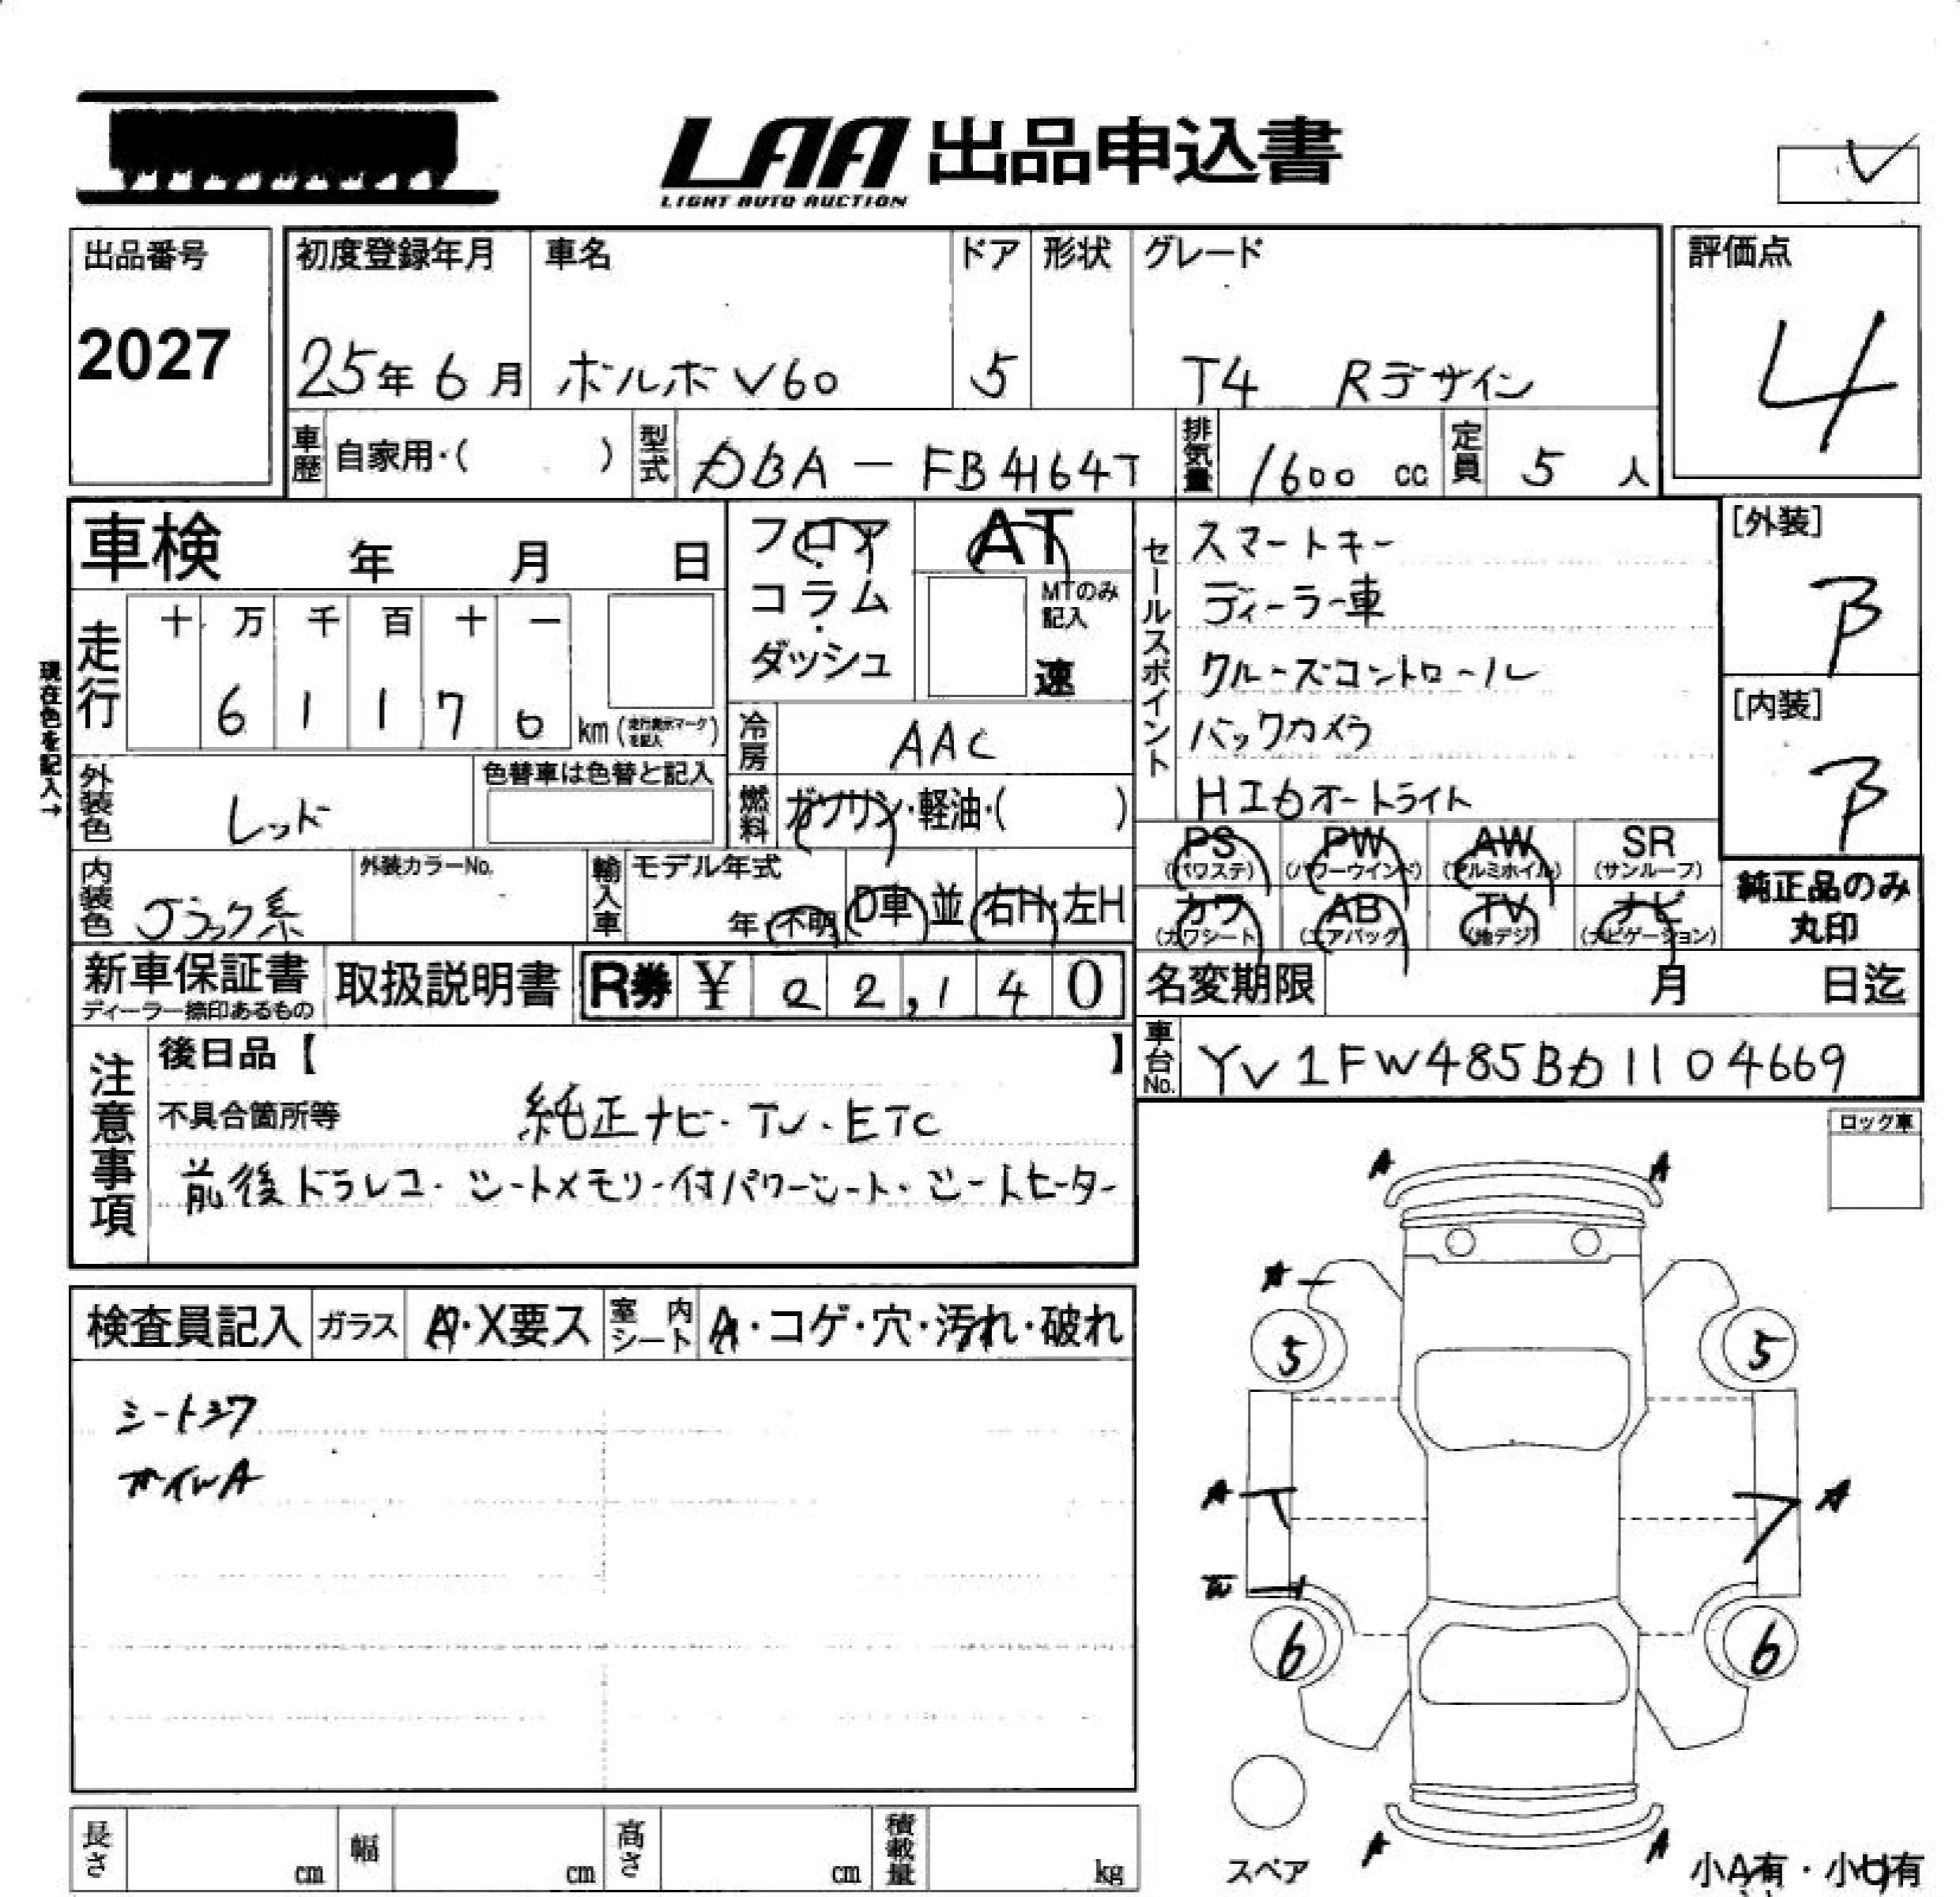 LAA 出品申込書
LIGHT AUTO AUCTION
出品番号
2027
初度登録年月
25年6月
車名
ボルボV60
ドア
5
形状
グレード
T4 Rデザイン
評価点
4
車歴
自家用・( )
型式
DBA-FB4164T
排気量
1600 cc
定員
5 人
車検 年 月 日
フロア・コラム・ダッシュ
AT
MTのみ記入
速
セールスポイント
スマートキー
ディーラー車
クルーズコントロール
バックカメラ
HIDオートライト
[外装]
B
[内装]
B
現在色を記入→
走行
十 万 千 百 十 一
6 1 1 7 0 km (走行表示マークを記入)
冷房
AAC
外装色
レッド
色替車は色替と記入
燃料
ガソリン・軽油・( )
PS (パワステ)
PW (パワーウインド)
AW (アルミホイル)
SR (サンルーフ)
カワ (カワシート)
AB (エアバッグ)
TV (地デジ)
ナビ (ナビゲーション)
純正品のみ丸印
内装色
ブラック系
外装カラーNo.
輸入車
モデル年式
年・不明
D車・並
右H・左H
新車保証書
ディーラー捺印あるもの
取扱説明書
R券 ¥ 22,140
名変期限 月 日迄
車台No.
YV1FW485BD1104669
注意事項
後日品【 】
不具合箇所等
純正ナビ・TV・ETC
前後ドラレコ・シートメモリー付パワーシート・シートヒーター
ロック車
検査員記入
ガラス
A・X要ス
室内シート
A・コゲ・穴・汚れ・破れ
シートシワ
ホイルA
A A
A
5 5
A A
6 6
スペア
A A
小A有・小U有
長さ cm
幅 cm
高さ cm
積載量 kg